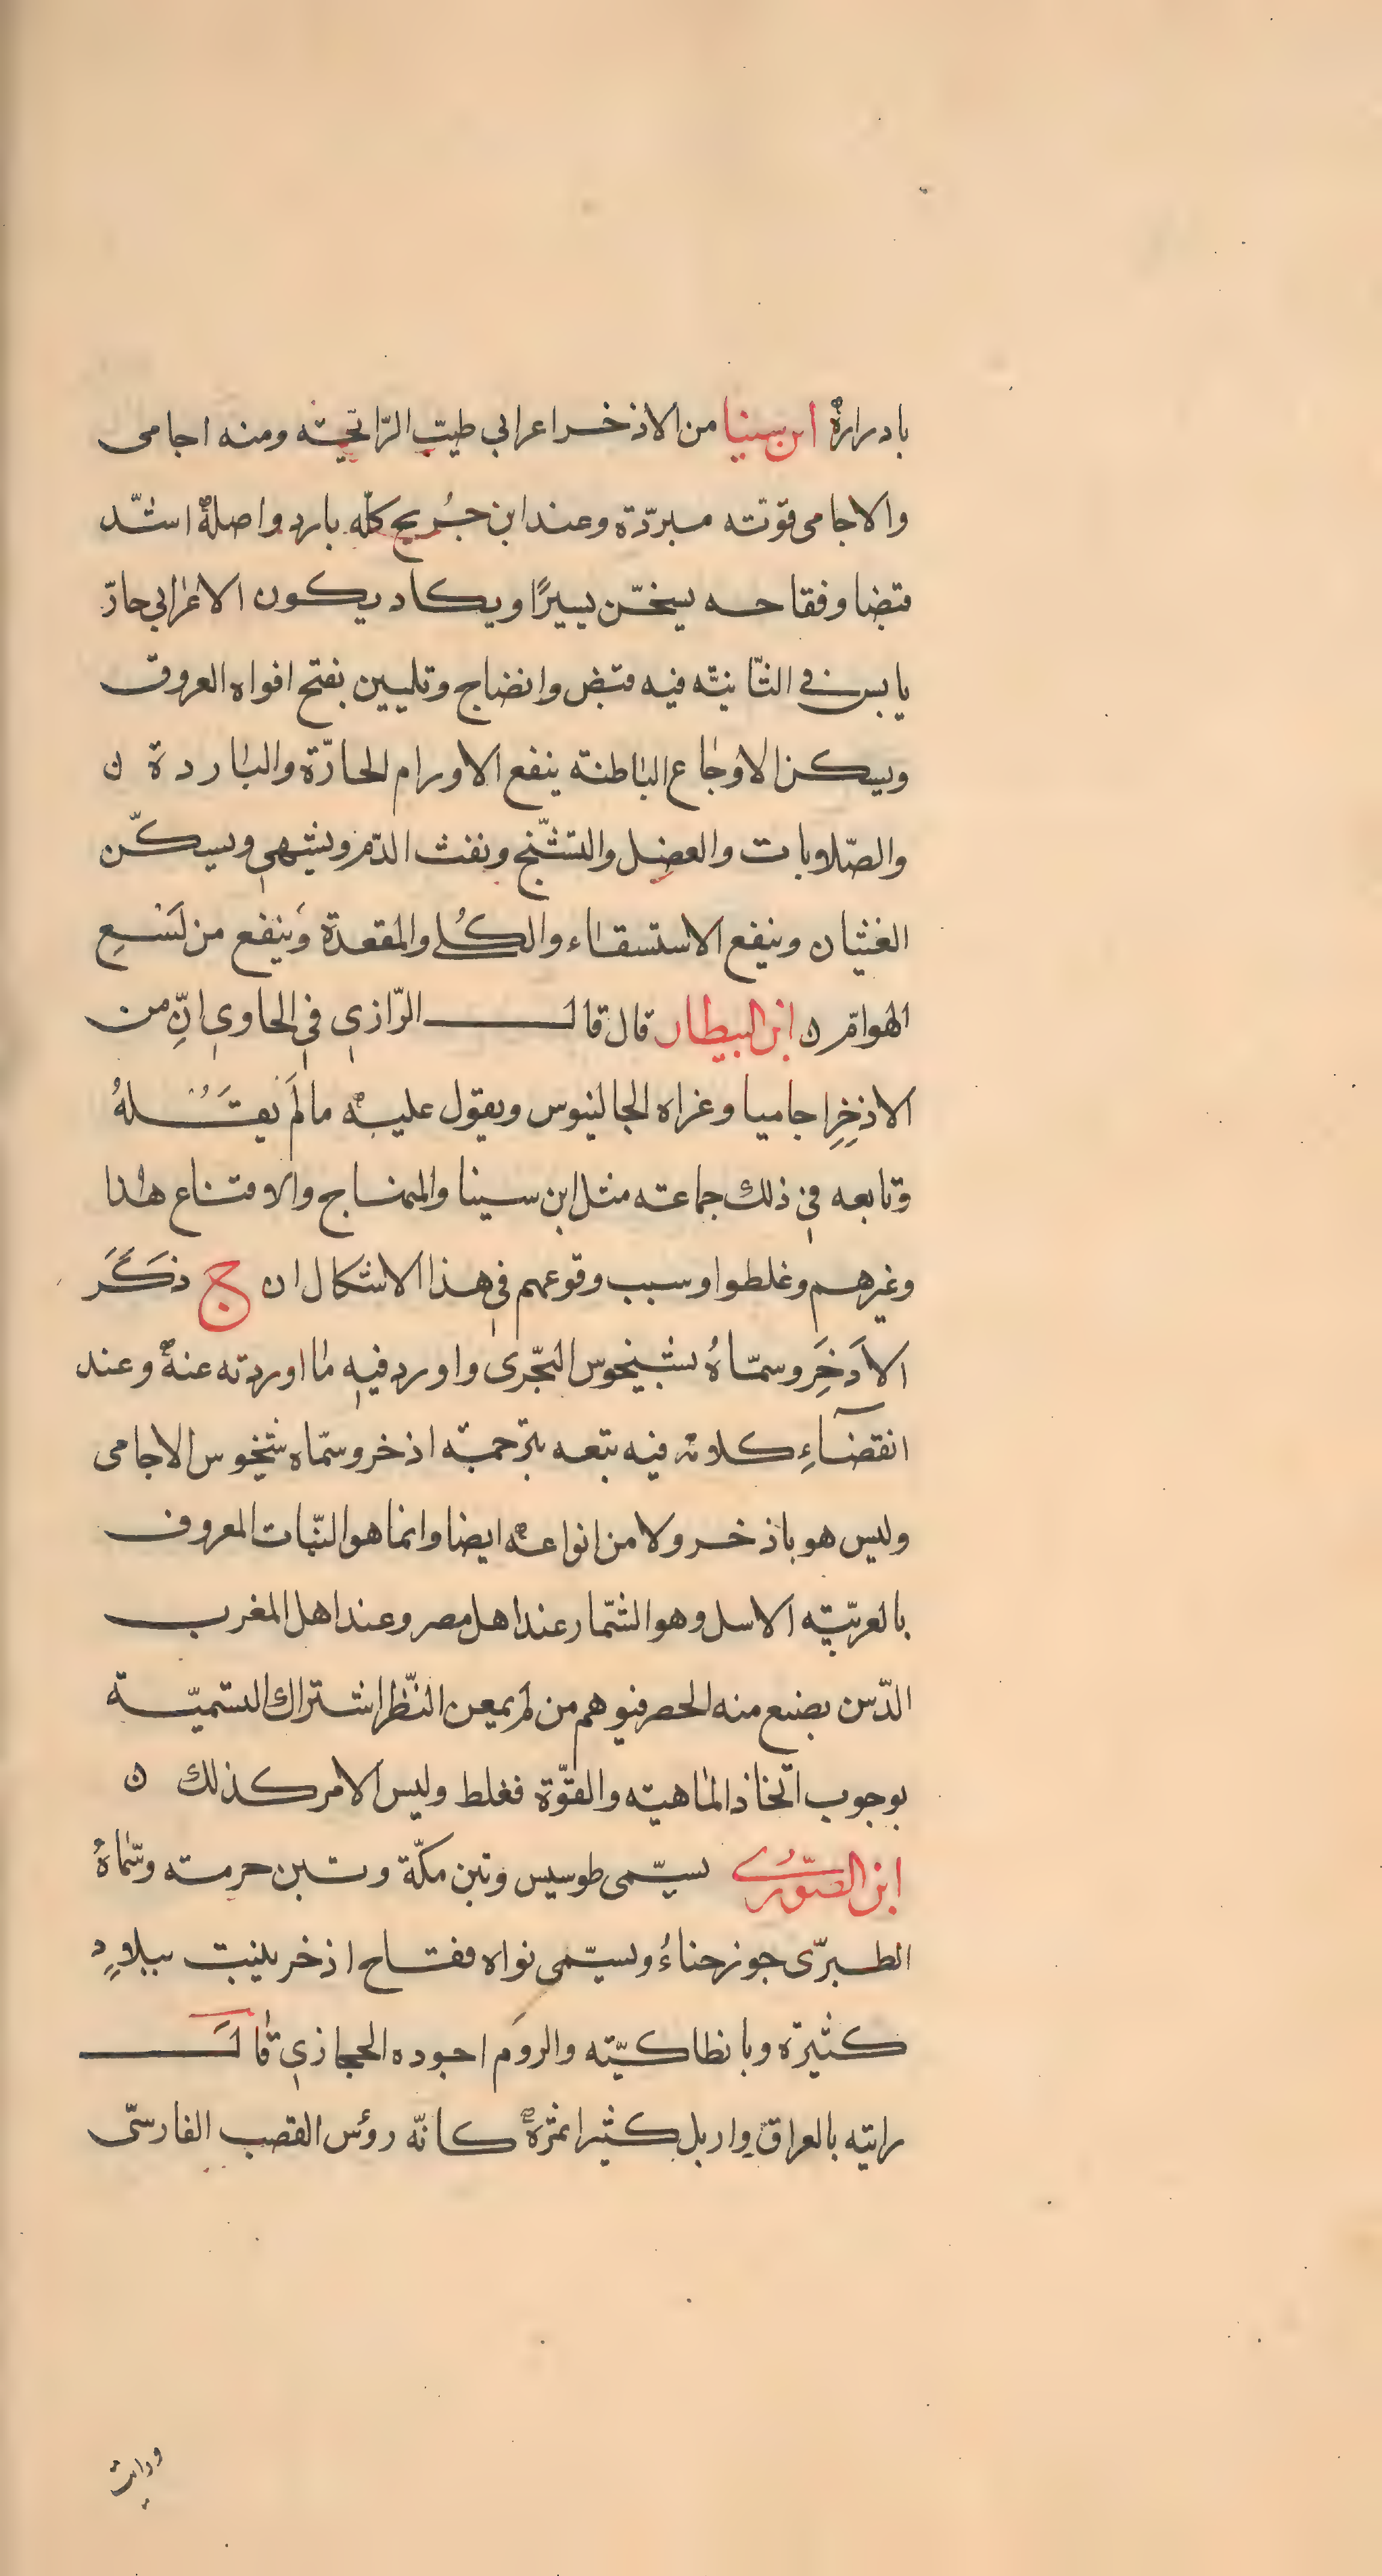 بادراره ابن سينا من الاذخر اعرابي طيّب الرّائحيّه ومنه اجامى
والاجامى قوّته مبرّدة وعند ابن جُريج كلّه بارد واصلهُ اشدّ
قبضا وفقاحه يسخّن يسيرًا ويكاد يكون الاعرابي حارّ
يابس في الثّانيّه فيه قبض وانضاج وتليين بفتح افواه العروق
ويسكن الاوجاع الباطنة ينفع الاورام الحارّة والباردة ن
والصّلابات والعضل والتشّنج ونفث الدّم ويشهي ويسكّن
الغثيان وينفع الاستسقاء والكُلي والمقعدة وَينفع من لَسْعِ
الهوامّ ن ابن البيطار قال قال الرّازي في الحاوي انّ من
الاذخِرِ اجاميا وغراه الجالينوس ويقول عليه ما لَم يقَـُـله
وتابعه في ذلك جماعته مثل ابن سينا والمنهاج والاقناع هٰذا
وغيرهم وغلطوا وسبب وقوعهم في هذا الاشكال ان ج ذكَرَ
الاذخِرَ وسمّاهُ بشنيحوس البحّرى واورد فيه ما اوردته عنهُ وعند
انقضآءِ كلامه فيه بتعه بترجمته اذخر وسمّاه شخيوس الاجامى
وليس هو باذخر ولا من انواعه ايضا وانما هو النبّات المعروف
بالعربيّته الاسل وهو الشمّار عند اهل مصر وعند اهل المغرب
الدّس يصنع منه الحصر فيوهم من لم يمعن النّظر اشتراك التسميّـة
بوجوب اتّخاذ الماهيته والقوّة فغلط وليس الامر كذلك ن
ابن الصّوُرى يسمّى طوسيس وتبن مكّة وتبن حرمته وسّماهُ
الطبرّى جوز جناءُ ويسمّى نواه فقاح اذخر ينبت ببلادٍ
كثيرة وبانطاكيّته والروم اجوده الحجازي قالَ
رايته بالعراق واربل كثيرا ثمرهُ كانّه رؤس القصب الفارسّى
ورايت